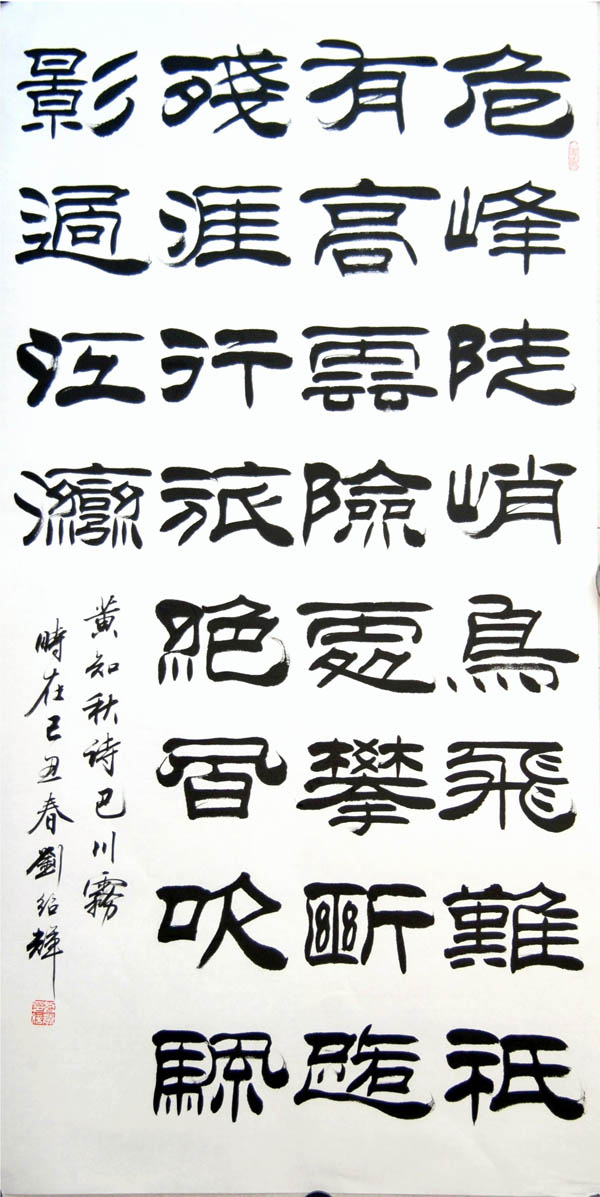 危峰陡峭鳥飛難祇
有高雲險處攀斷路
殘涯行旅絕風吹颿
影過江灣
黄知秋诗巴川霧
時在己丑春劉紹輝